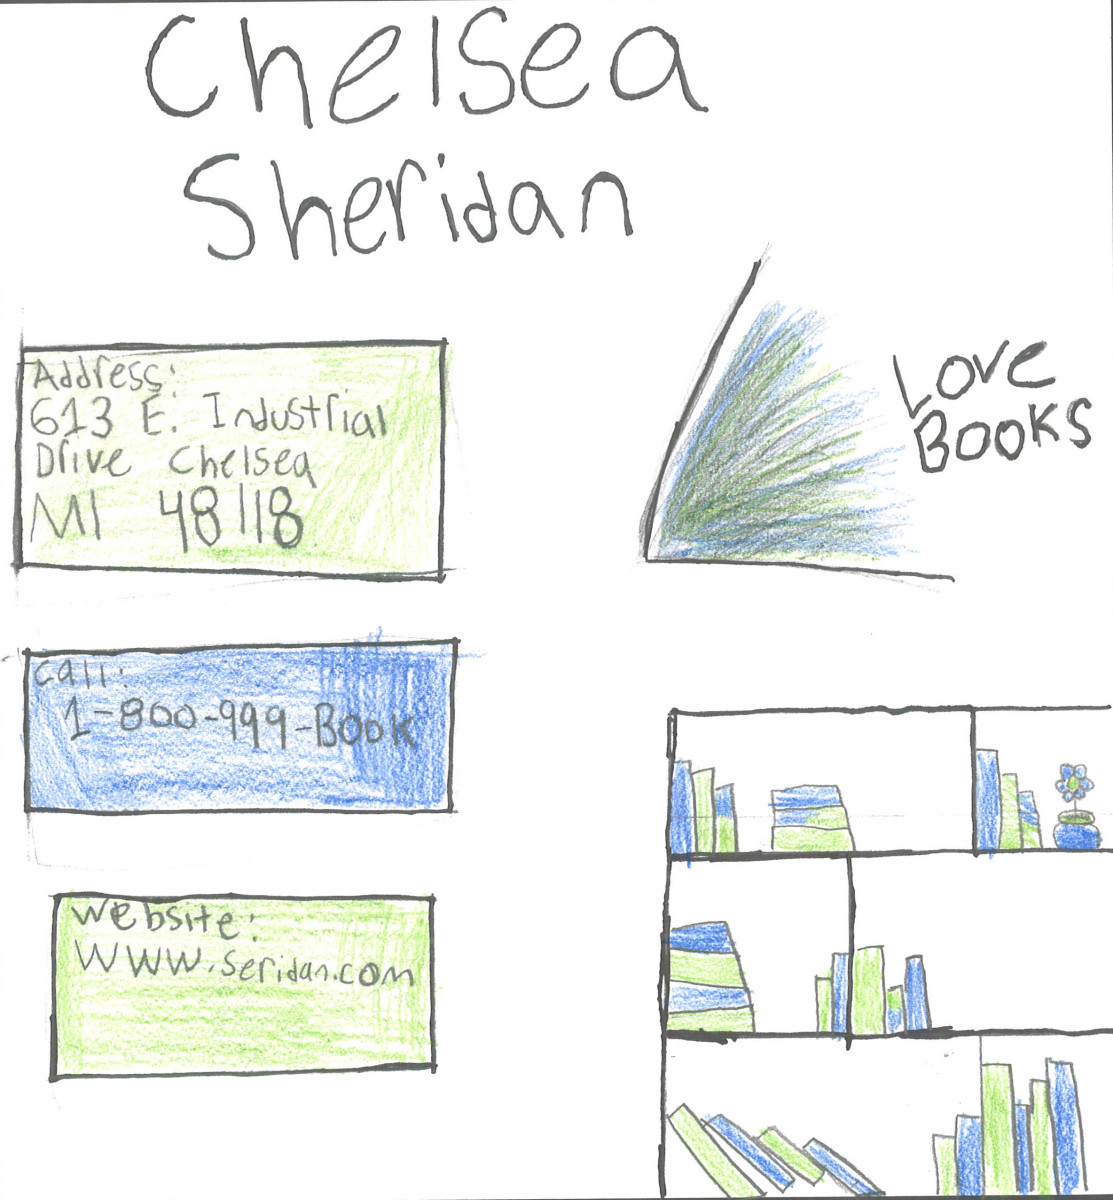 Chelsea
Sheridan
Address:
613 E. Industrial
Drive Chelsea
MI 48118
Love
Books
Call:
1-800-999-Book
Website:
WWW.seridan.com